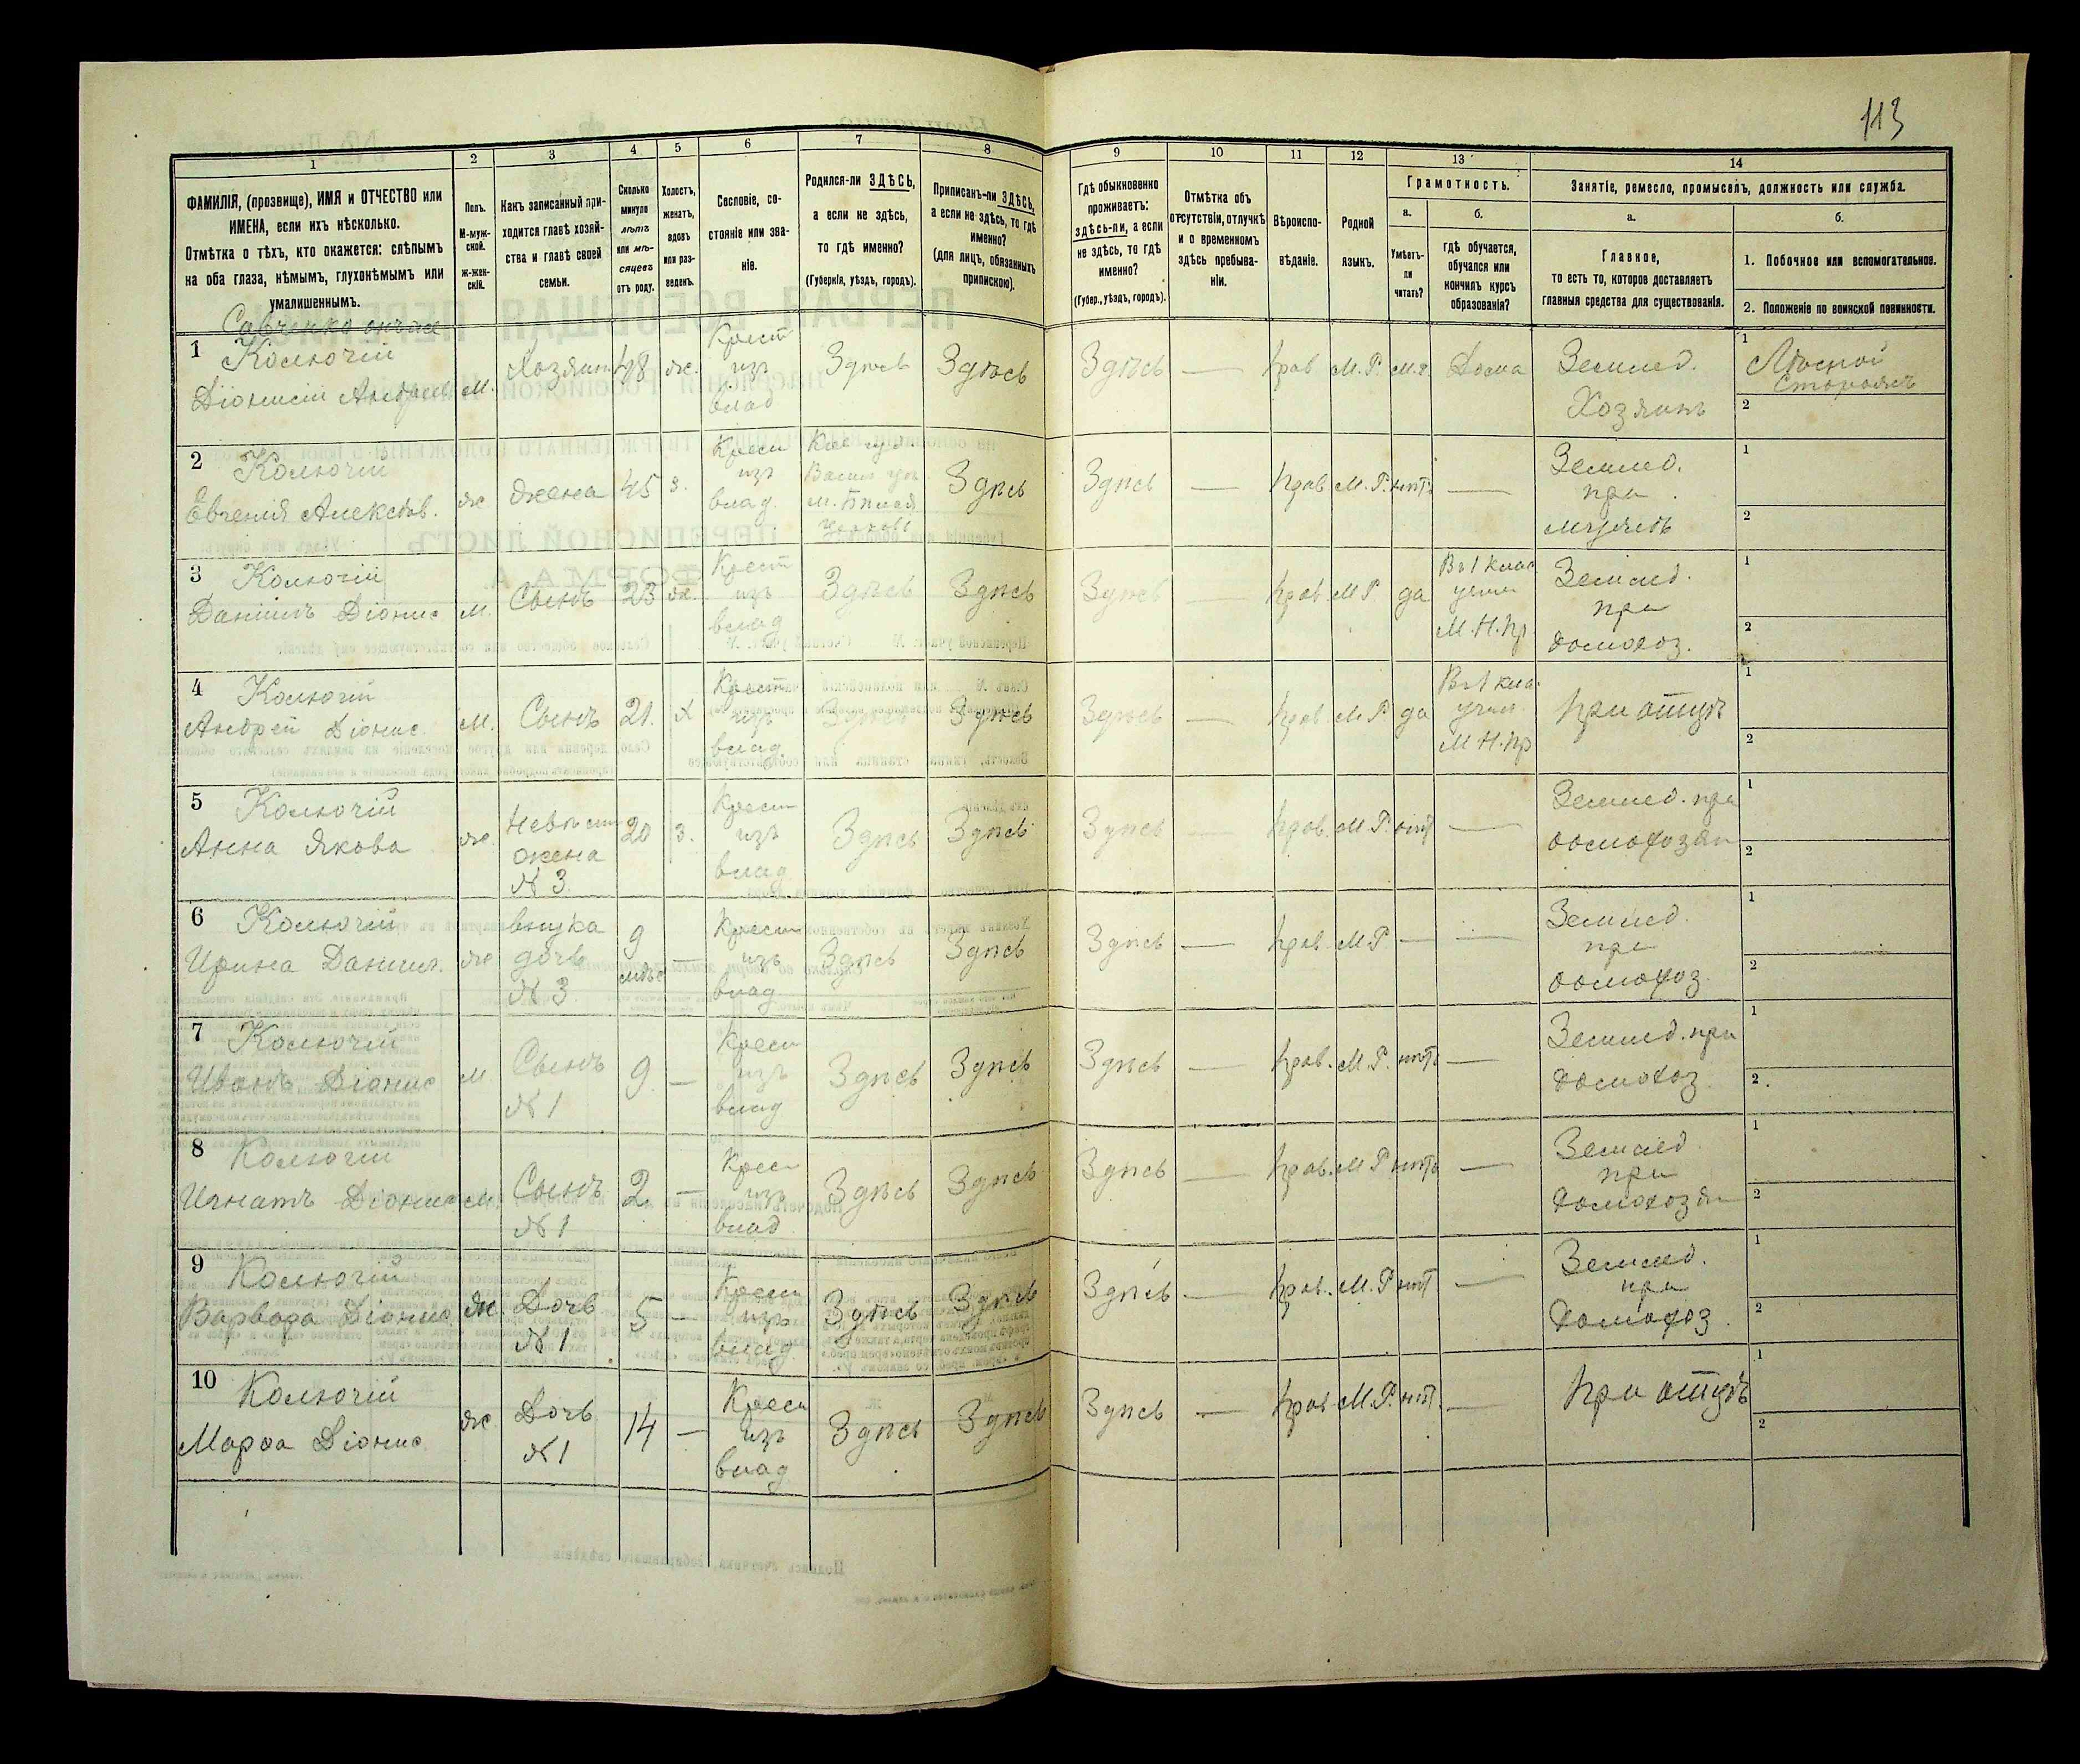 113
1 2 3 4 5 6 7 8 9 10 11 12 13 14
ФАМИЛІЯ, (прозвище), ИМЯ и ОТЧЕСТВО или
ИМЕНА, если ихъ нѣсколько.
Отмѣтка о тѣхъ, кто окажется: слѣпымъ
на оба глаза, нѣмымъ, глухонѣмымъ или
умалишеннымъ.
Полъ.
М-муж-
ской.
ж-жен-
скій.
Какъ записанный при-
ходится главѣ хозяй-
ства и главѣ своей
семьи.
Сколько
минуло
лѣтъ
или мѣ-
сяцевъ
отъ роду.
Холостъ,
женатъ,
вдовъ
или раз-
веденъ.
Сословіе, со-
стояніе или зва-
ніе.
Родился-ли ЗДѢСЬ,
а если не здѣсь,
то гдѣ именно?
(Губернія, уѣздъ, городъ).
Приписанъ-ли ЗДѢСЬ,
а если не здѣсь, то гдѣ
именно?
(для лицъ, обязанныхъ
припискою).
Гдѣ обыкновенно
проживаетъ:
здѣсь-ли, а если
не здѣсь, то гдѣ
именно?
(Губер., уѣздъ, городъ).
Отмѣтка объ
отсутствіи, отлучкѣ
и о временномъ
здѣсь пребыва-
ніи.
Вѣроиспо-
вѣданіе.
Родной
языкъ.
Грамотность.
а.
Умѣетъ-
ли
читать?
б.
гдѣ обучается,
обучался или
кончилъ курсъ
образованія?
Занятіе, ремесло, промыселъ, должность или служба.
а.
Главное,
то есть то, которое доставляетъ
главныя средства для существованія.
б.
1. Побочное или вспомогательное.
2. Положеніе по воинской повинности.
1 Колючій
Діонисій Андреев М. Хозяин 48 ж. Крест изъ влад Здѣсь Здѣсь Здѣсь — Прав М.Р. Дома Землед. Хозяинъ 1 Лѣсной Сторожъ 2
2 Колючій
Евгенія Алексѣев. ж жена 45 з. Крест изъ влад. Здѣсь Здѣсь — Прав М.Р. нѣтъ — Землед. при мужѣ 1 2
3 Колючій
Даніилъ Діонис М. Сынъ 23 ж. Крест изъ влад Здѣсь Здѣсь Здѣсь — Прав. М.Р. да Въ 1 клас учил М.Н.Пр Землед. при домохоз. 1 2
4 Колючій
Андрей Діонис. М. Сынъ 21. Х Крест изъ влад. Здѣсь Здѣсь Здѣсь — Прав. М.Р да Въ 1 кла. учил. М Н.Пр При отцѣ 1 2
5 Колючій
Анна Якова ж. Невѣст жена № 3. 20 з. Крест изъ влад Здѣсь Здѣсь Здѣсь — Прав. М.Р. нѣт — Землед. при домохозяи 1 2
6 Колючій
Ирина Даниил. ж внука дочь № 3 9 мѣс — Крест изъ влад Здѣсь Здѣсь Здѣсь — Прав. М.Р — — Землед. при домохоз. 1 2
7 Колючій
Иванъ Діонис М Сынъ № 1 9 — Крест изъ влад Здѣсь Здѣсь Здѣсь — Прав. М.Р. нѣтъ — Землед. при домохоз 1 2
8 Колючій
Игнатъ Діонис М. Сынъ № 1 2 — Крест изъ влад Здѣсь Здѣсь Здѣсь — Прав. М Р нѣтъ — Землед. при домохозяи 1 2
9 Колючій
Варвара Діонис ж. Дочь № 1 5 — Крест изъ влад. Здѣсь Здѣсь Здѣсь — Прав. М.Р нѣт — Землед. при домохоз. 1 2
10 Колючій
Марфа Діонис ж Дочь № 1 14 — Крест изъ влад Здѣсь Здѣсь Здѣсь — Прав М.Р. нѣт. — При отцѣ 1 2